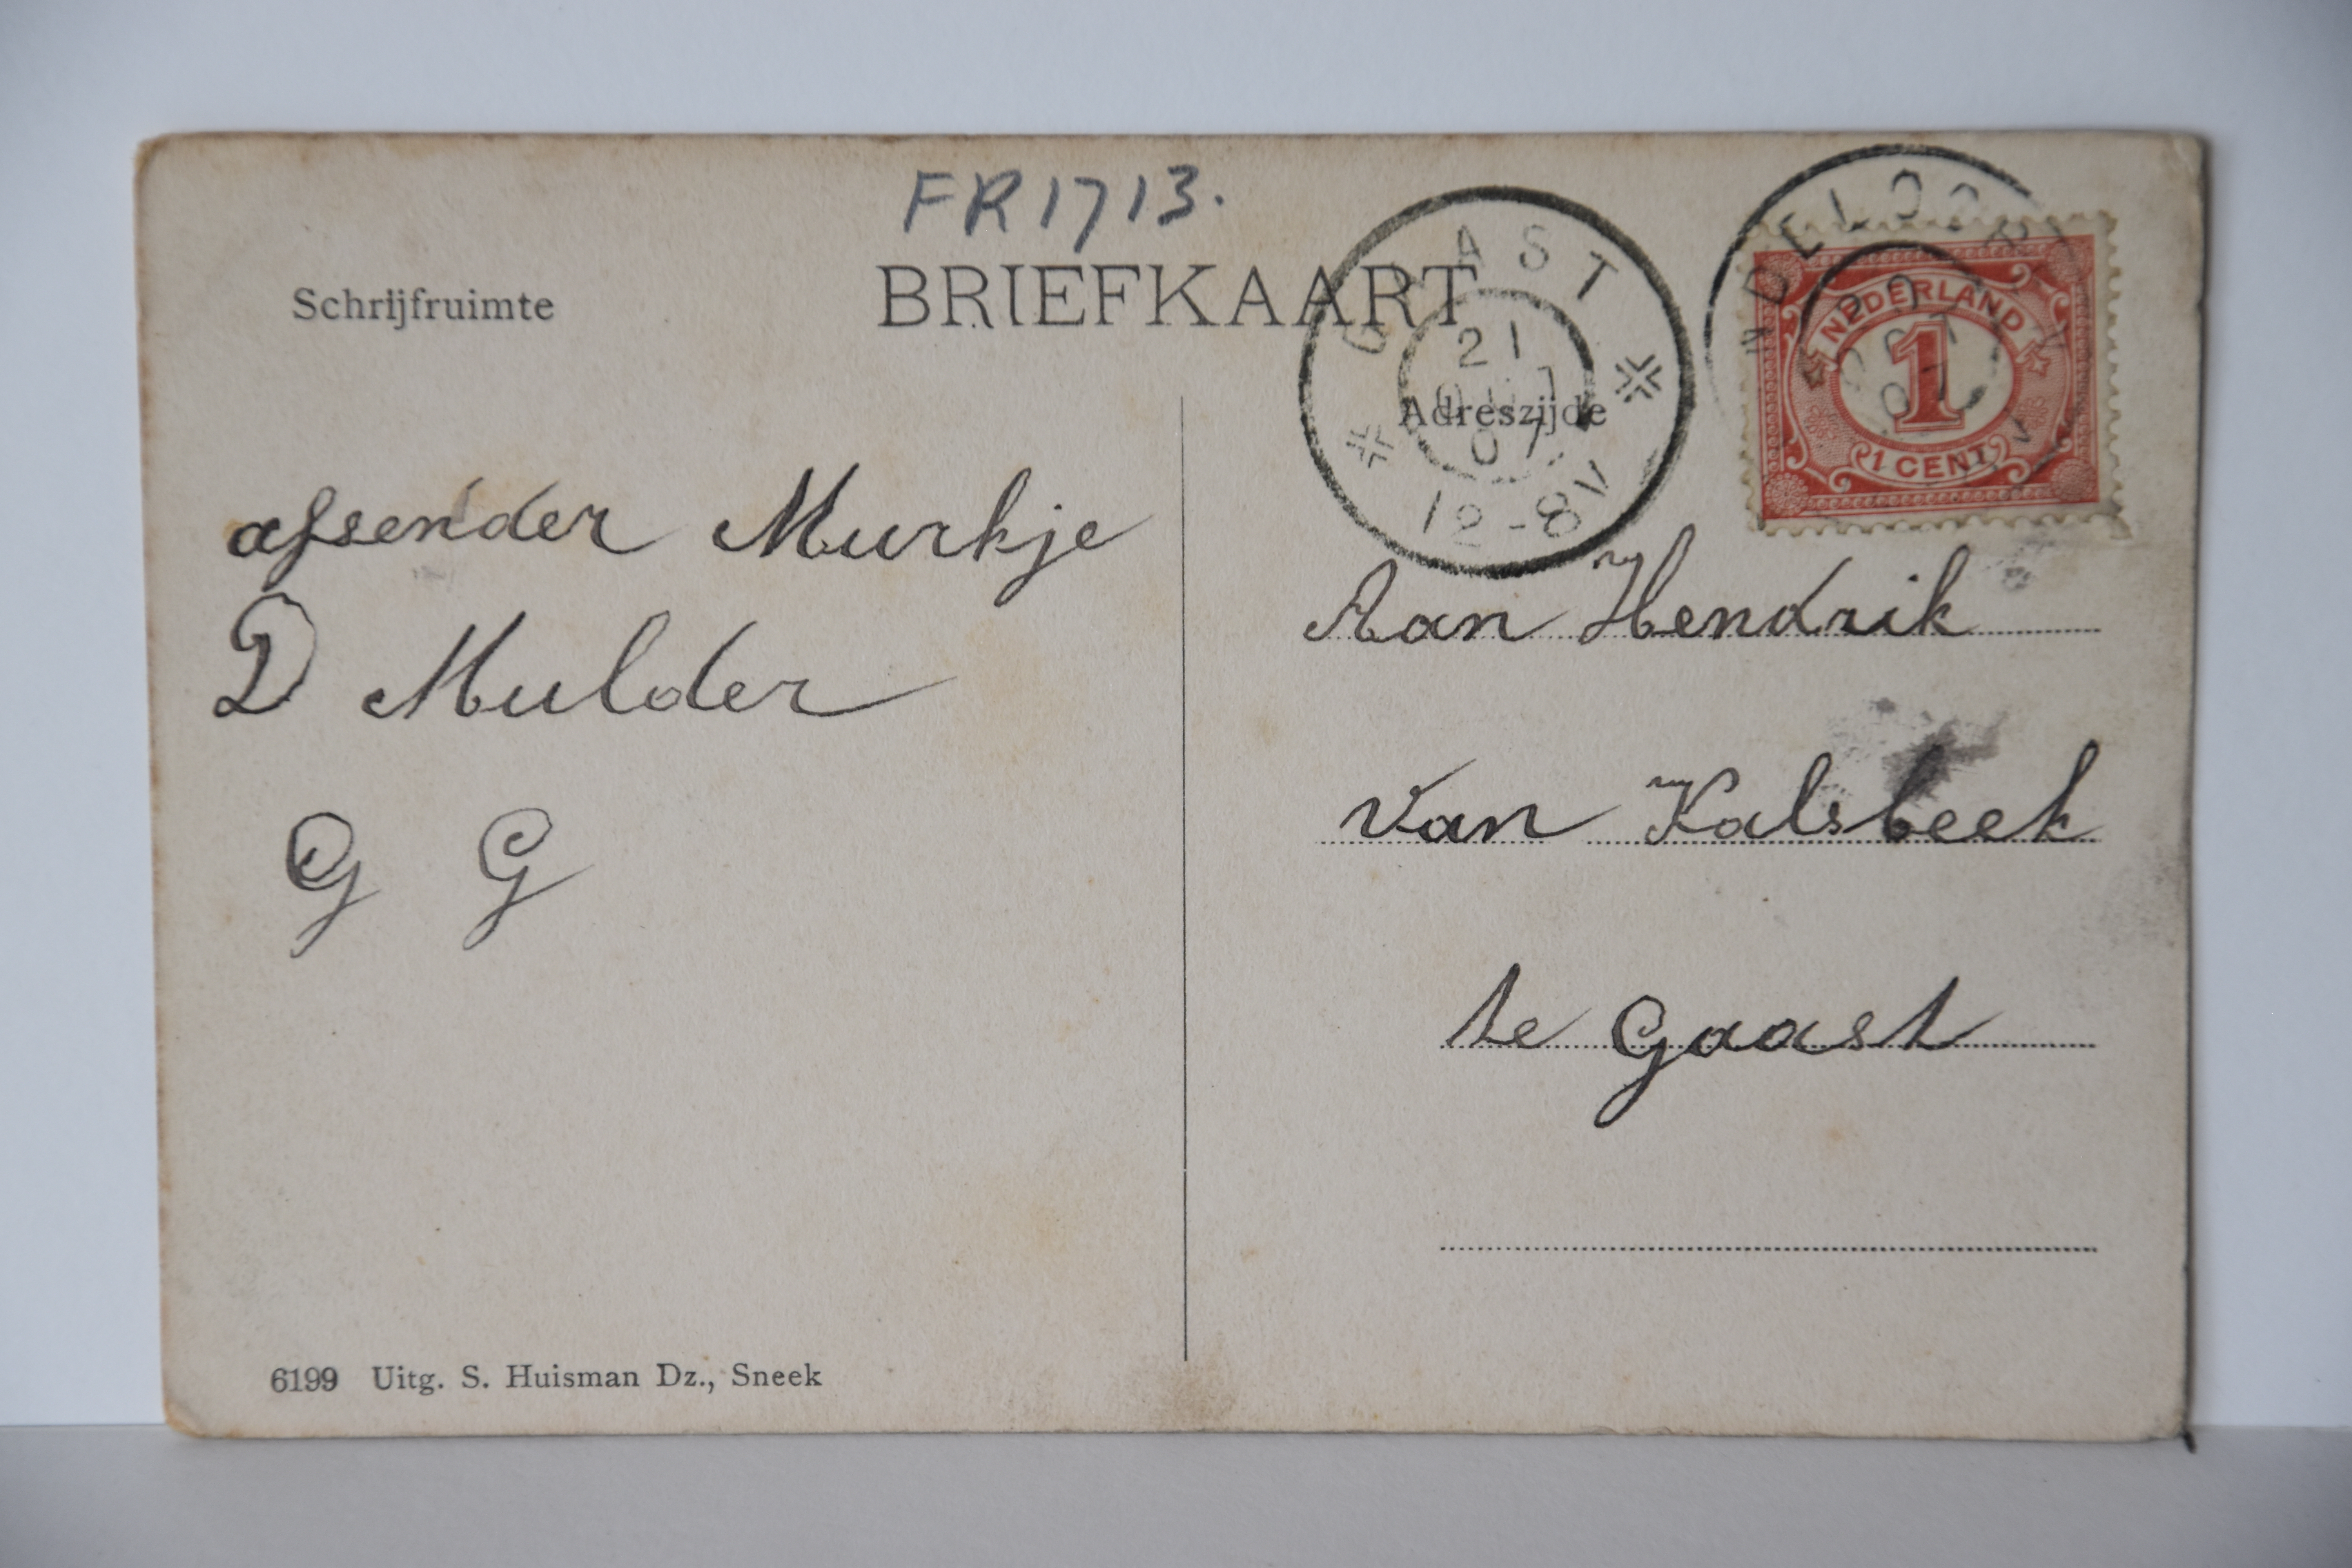 FR1713.
BRIEFKAART
Schrijfruimte
Adreszijde
AST
21
07
12-8V
NEDERLAND
1
1 CENT
afsender Murkje
D Mulder
G G
Aan Hendrik
van Kalsbeek
te Gaast
6199 Uitg. S. Huisman Dz., Sneek